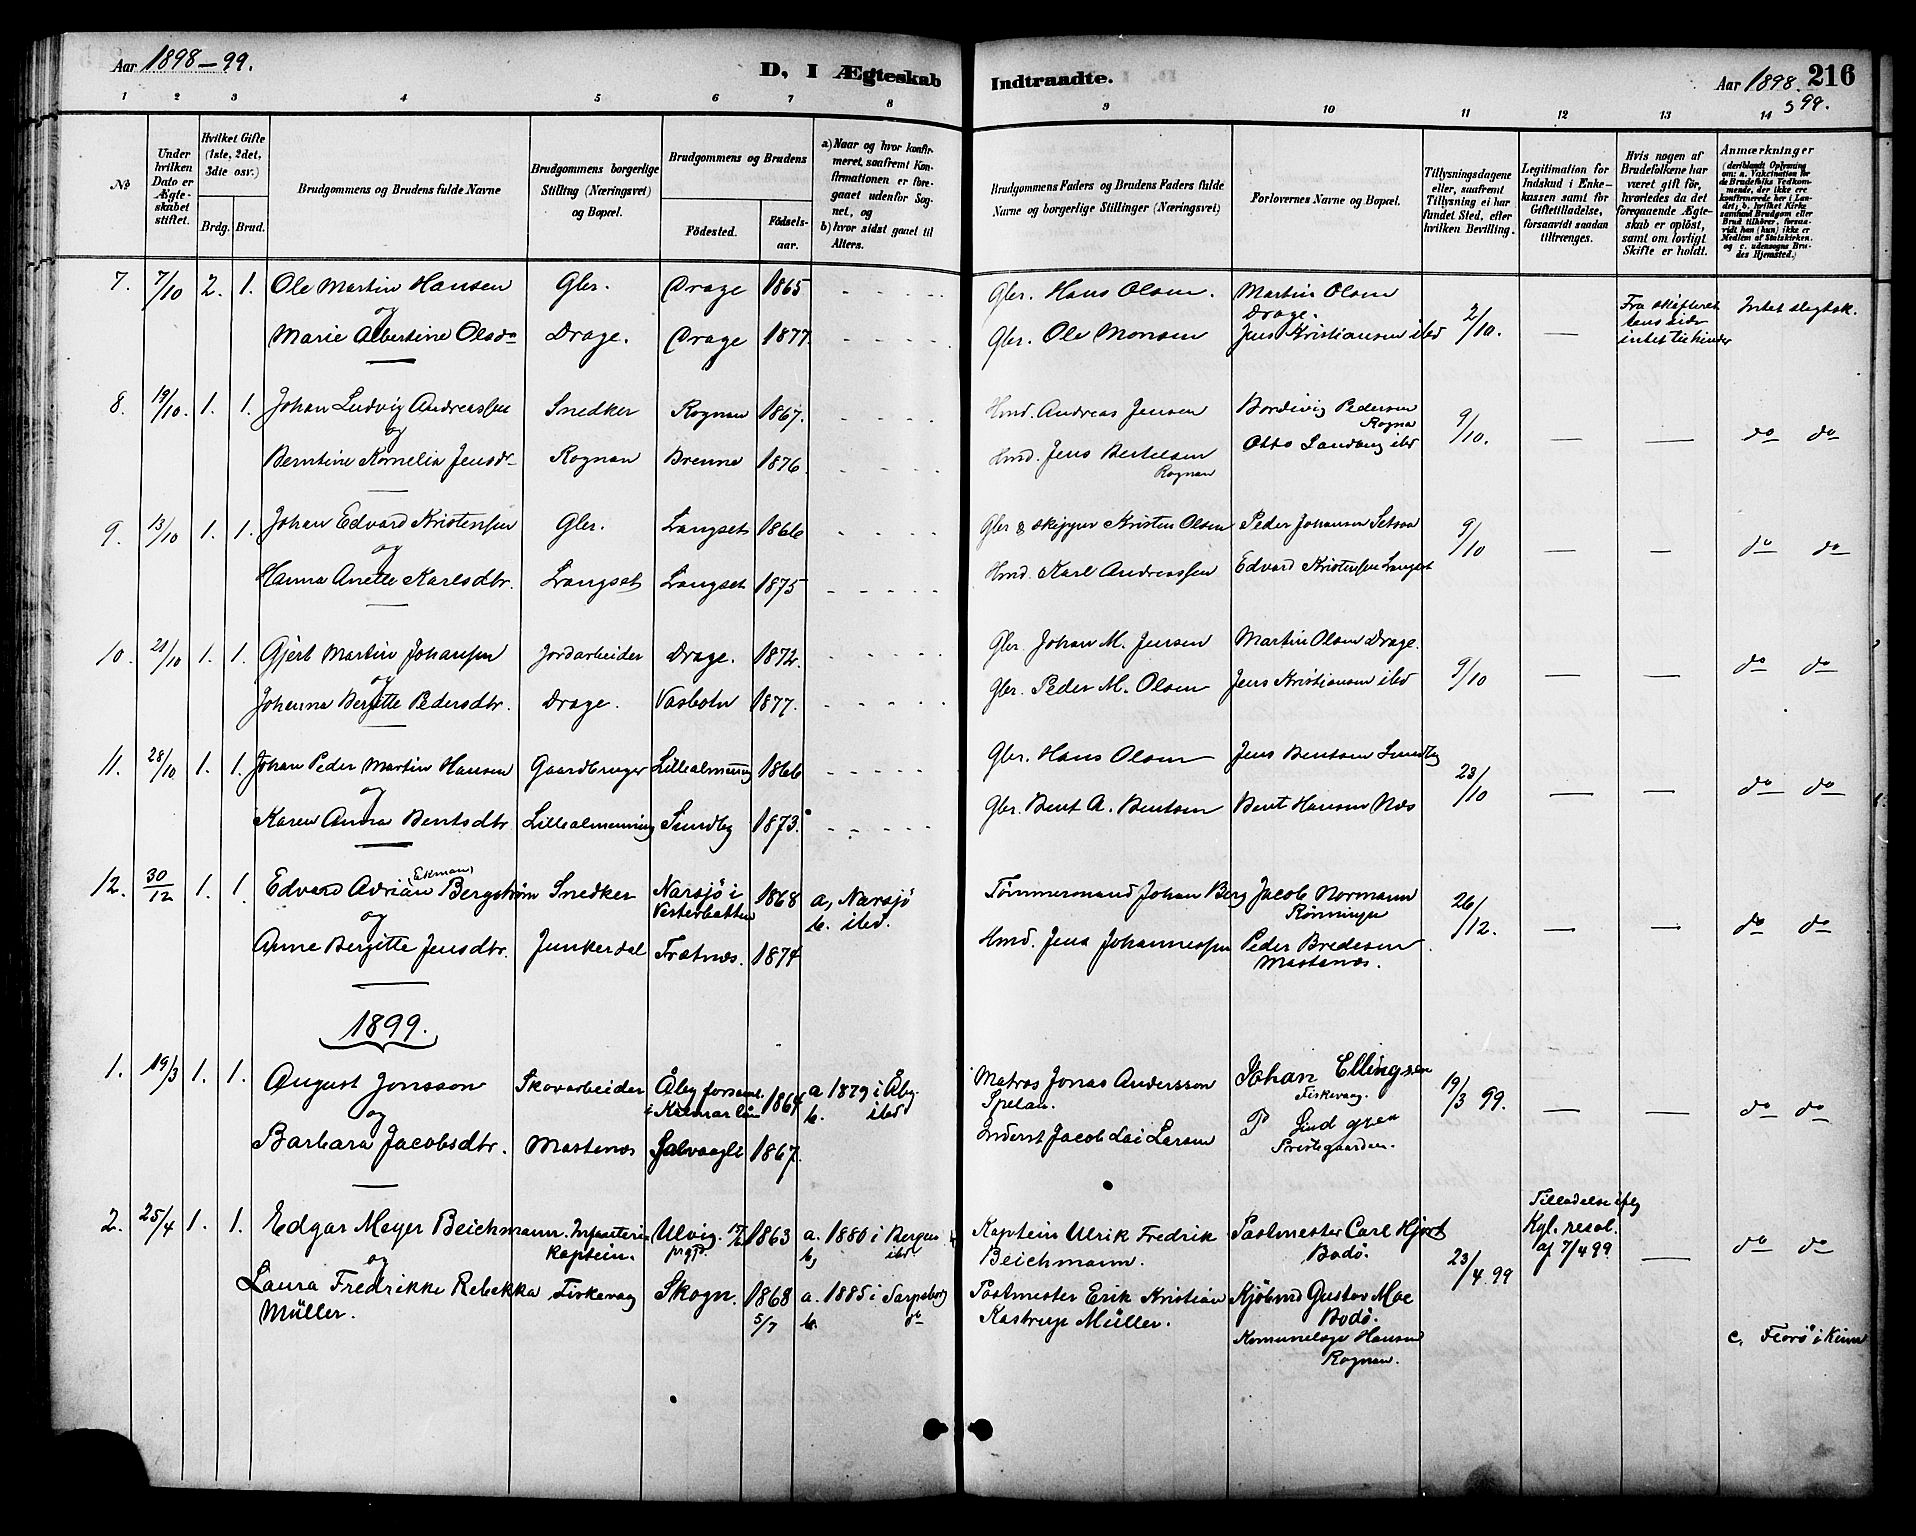 Aar 1898-99.
D, I Ægteskab
Indtraadte.
Aar 1898
216
99.
1 2 3 4 5 6 7 8
9 10 11 12 13 14
No
Under hvilken Dato er Ægteskabet stiftet.
Hvilket Gifte (1ste, 2det, 3die osv.)
Brdg. Brud.
Brudgommens og Brudens fulde Navne
Brudgommens borgerlige Stilling (Næringsvei) og Bopæl.
Brudgommens og Brudens
Fødested.
Fødselsaar.
a) Naar og hvor konfirmeret, saafremt Konfirmationen er foregaaet udenfor Sognet, og
b) hvor sidst gaaet til Alters.
Brudgommens Faders og Brudens Faders fulde Navne og borgerlige Stillinger (Næringsvei)
Forlovernes Navne og Bopæl.
Tillysningsdagene eller, saafremt Tillysning ei har fundet Sted, efter hvilken Bevilling.
Legitimation for Indskud i Enkekassen samt for Giftetilladelse, forsaavidt saadan tiltrænges.
Hvis nogen af Brudefolkene har været gift før, hvorledes da det foregaaende Ægteskab er opløst, samt om lovligt Skifte er holdt.
Anmærkninger (deriblandt Oplysning om: a. Vakcination for de Brudefolks Vedkommende, der ikke ere konfirmerede her i Landet; b. hvilket Kirkesamfund Brudgom eller Brud tilhører, forsaavidt han (hun) ikke er Medlem af Statskirken, og c. udensogns Brudes Hjemsted.)
7. 7/10 2. 1. Ole Martin Hansen Gbr. Drage 1865 Gbr. Hans Olsen. Martin Olsen Drage. 2/10. Fra skifteret tens side intet til hinder Intet slegtsk.
og
Marie Albertine Olsdr Drage. Drage 1877. Gbr. Ole Monsen Jens Kristiansen ibd
8. 19/10. 1. 1. Johan Ludvig Andreassen Snedker Rognan 1867. Hmd. Andreas Jensen Bordevig Pedersen Rognan 9/10. do do
og
Berntine Kornelia Jensdr Rognan Brenne 1876. Hmd. Jens Bertelsen Rognan Otto Sandberg ibd
9. 13/10 1. 1. Johan Edvard Kristensen Gbr. Langset 1866 Gbr & skipper Kristen Olsen Peder Johansen Setsaa 9/10 do do
og
Hanna Anette Karlsdtr. Langset Langset 1875 Hmd. Karl Andreassen Edvard Kristensen Langset
10. 21/10 1. 1. Gjert Martin Johansen Jordarbeider Drage. 1872. Gbr. Johan M. Jensen Martin Olsen Drage. 9/10 do do
og
Johanna Bergitte Pedersdtr. Drage. Vasbotn 1877. Gbr. Peder M. Olsen Jens Kristiansen ibd
11. 28/10 1. 1. Johan Peder Martin Hansen Gaardbruger Lillealmenning 1866 Gbr. Hans Olsen Jens Bentsen Sundby 23/10 do do
og
Karen Anna Bentsdtr Lillealmenning Sundby 1873. Gbr. Bent A. Bentsen Bent Hansen Næs
12. 30/12 1. 1. Edvard Adrian (Ekman) Bergstrøm Snedker Narsjö i Vesterbotten 1868 a, Narsjö b. ibd. Tømmermand Johan Berg Jacob Normann Rønningen 26/12. do do
og
Anne Bergitte Jensdtr. Junkerdal Trætnæs. 1874 Hmd. Jens Johannessen Peder Bredesen Mastenæs.
1899.
1. 19/3 1. 1. August Jonsson Skovarbeider Åby forsaml. i Kalmar län 1864 a 1879 i Åby. b. ibd Matros Jonas Andersson Spelan. Johan Ellingsen Fiskevaag. 19/3 99. do do
og
Barbara Jacobsdtr. Mastenæs Saltvaagli 1867. Inderst Jacob Lai Larsen P Lindgren Prestegaarden.
2. 25/4 1. 1. Edgar Meyer Beichmann. Infanteri Kaptein. Ulvig. prgj. 1863 a. 1880 i Bergen b, ibd Kaptein Ulrik Fredrik Beichmann. Postmester Carl Hjort Bodö. 23/4 99 Tilladelse iflg Kgl. resol. af 7/4 99 do do
og
Laura Fredrikke Rebekka Müller. Fiskevaag Skogn. 1868 5/7 a. 1885 i Sarpsborg b. do Postmester Erik Kristian Kastrup Müller. Kjöbmd Gustav Moe Bodö.
Komunelæge Hansen Rognan.
c. Florö i Kinn